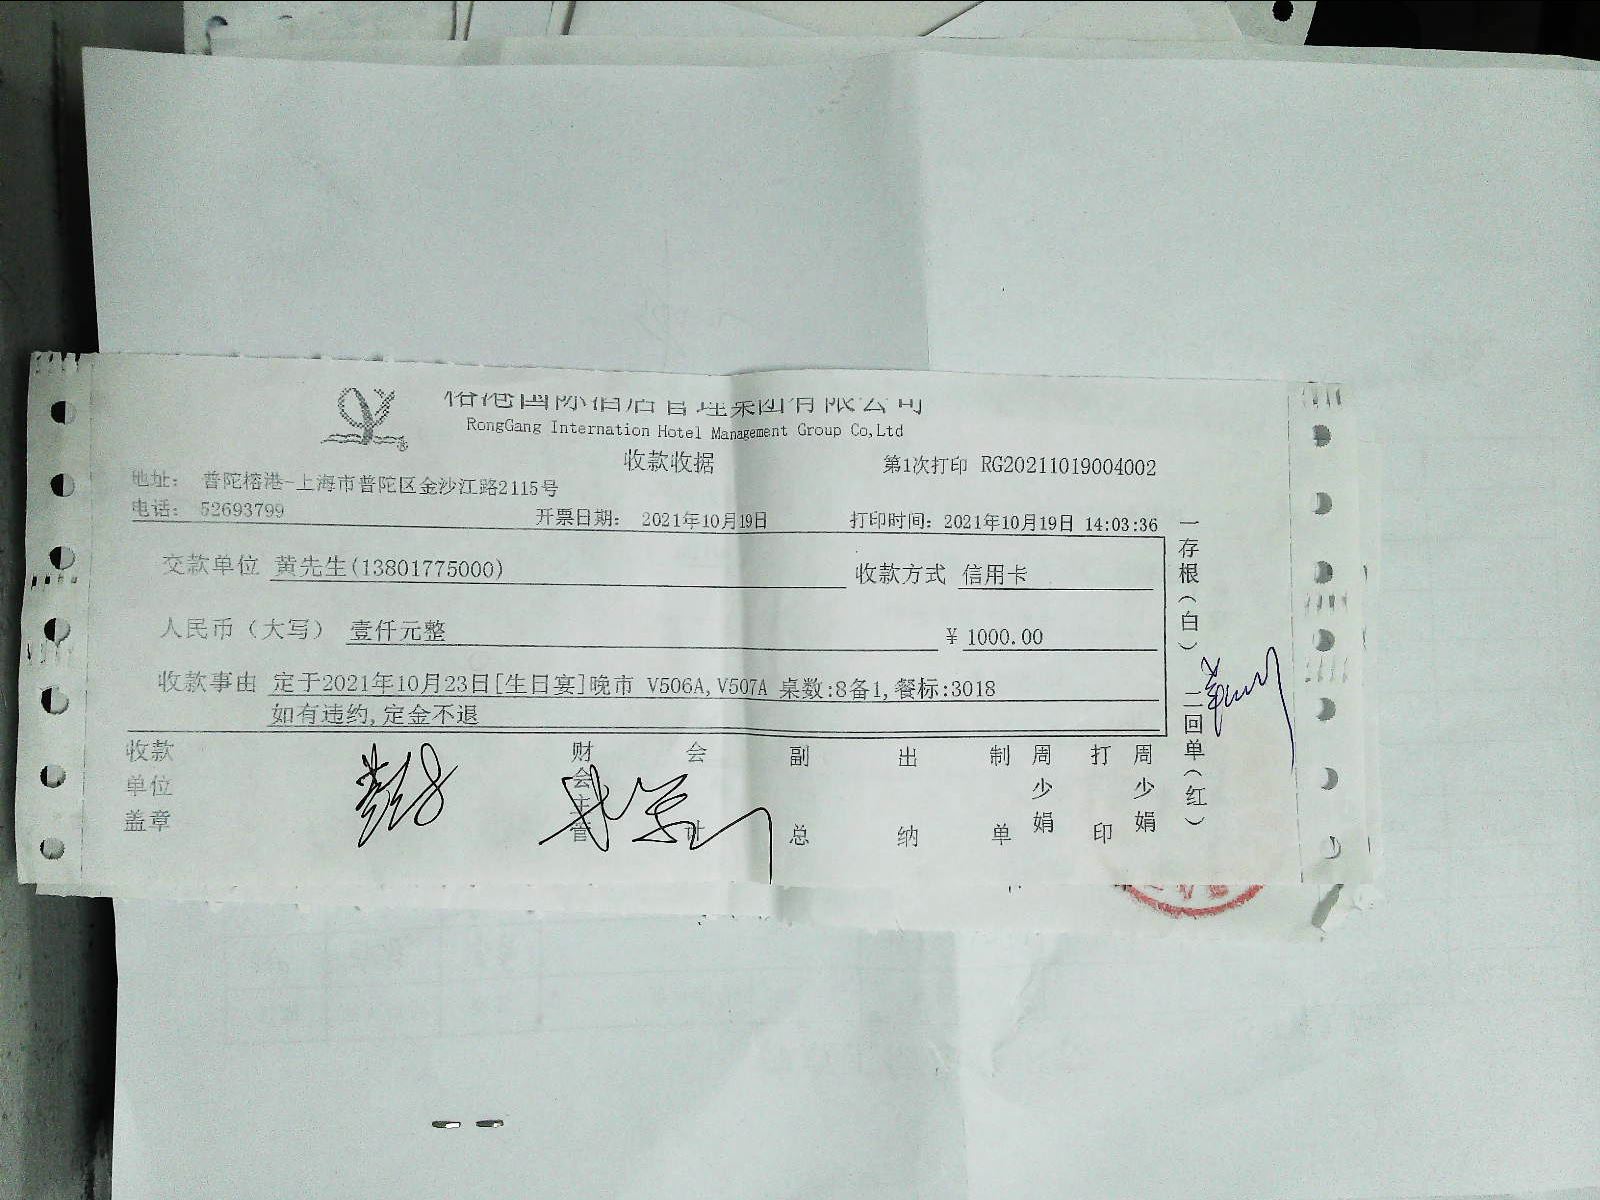 榕港国际酒店管理集团有限公司
RongGang Internation Hotel Management Group Co,Ltd
收款收据
第1次打印 RG20211019004002
地址: 普陀榕港-上海市普陀区金沙江路2115号
电话: 52693799
开票日期: 2021年10月19日
打印时间: 2021年10月19日 14:03:36
交款单位 黄先生(13801775000)
收款方式 信用卡
人民币(大写) 壹仟元整
¥ 1000.00
收款事由 定于2021年10月23日[生日宴]晚市 V506A,V507A 桌数:8备1,餐标:3018
如有违约,定金不退
一存根(白) 二回单(红)
收款
单位
盖章
财会主管
会计
副总
出纳
制单
周少娟
打印
周少娟